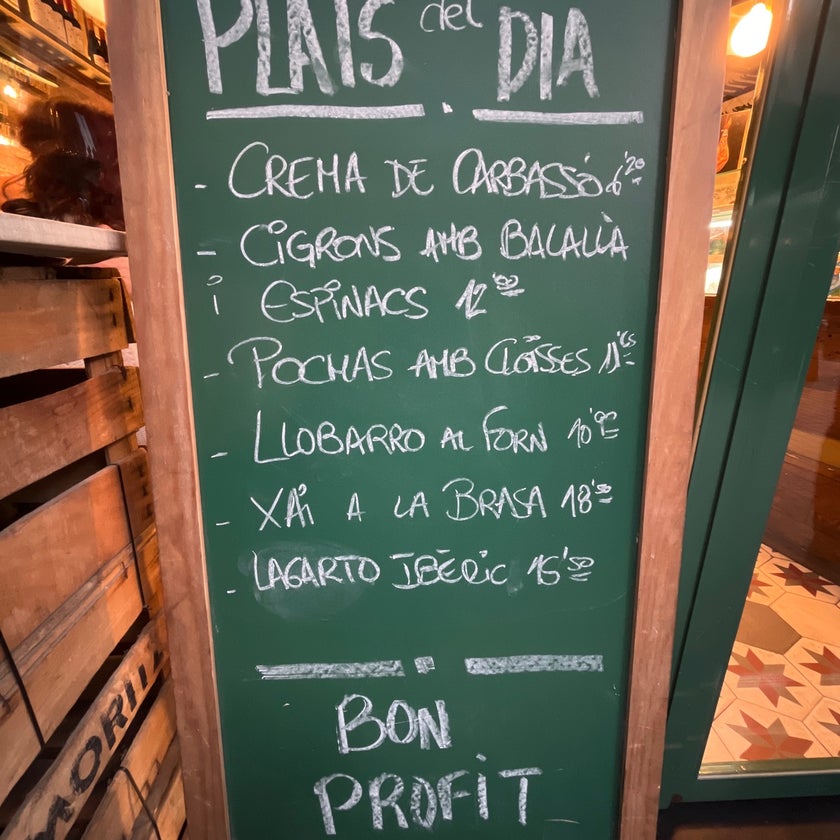 PLATS del DIA
- CREMA DE CARBASSÓ 6'20
- CIGRONS AMB BACALLÀ
i ESPINACS 12'00
- POCHAS AMB CLOÏSSES 11'65
- LLOBARRO AL FORN 10'90
- XAI A LA BRASA 18'50
- LAGARTO IBÈRIC 15'50
BON
PROFIT
MORITZ